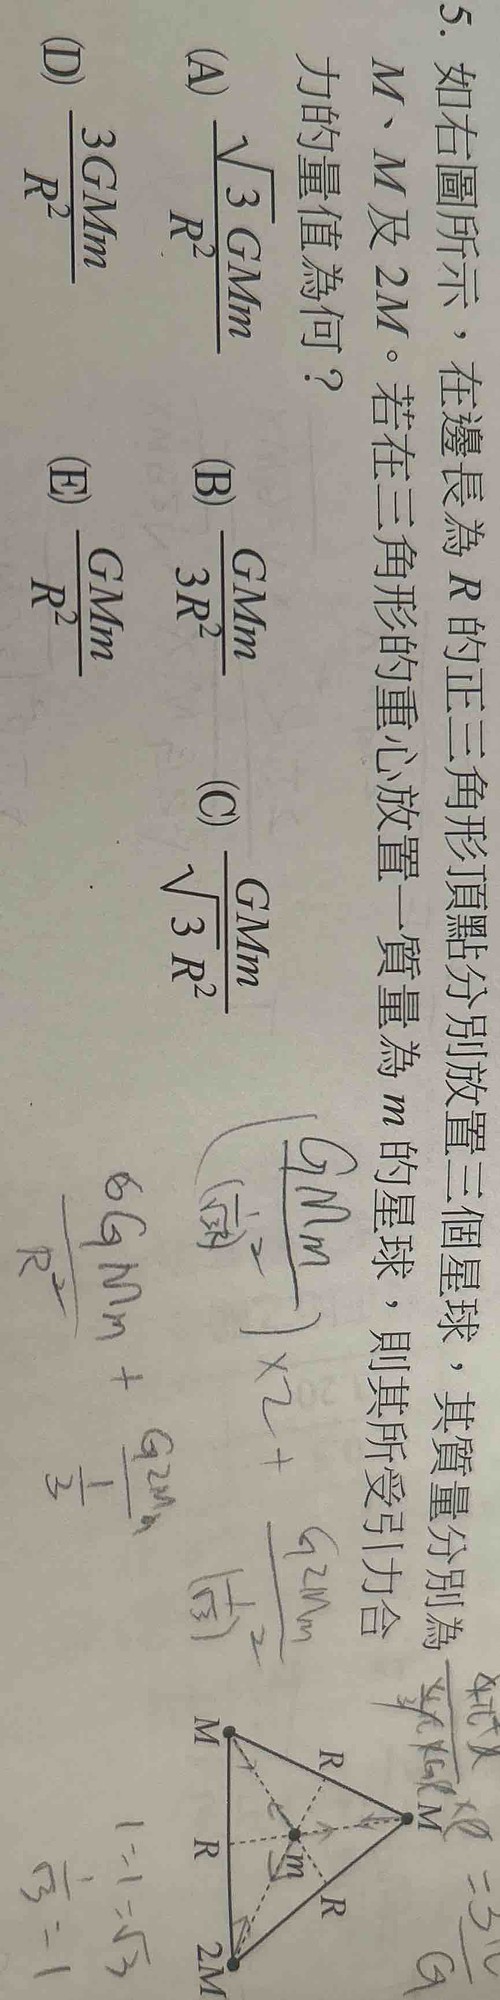 5. 如右圖所示，在邊長為 R 的正三角形頂點分別放置三個星球，其質量分別為
M、M 及 2M。若在三角形的重心放置一質量為 m 的星球，則其所受引力合
力的量值為何？
(A) √3 GMm / R²
(B) GMm / 3R²
(C) GMm / √3 R²
(D) 3GMm / R²
(E) GMm / R²
M
R
R
m
M
R
2M
(GMm / (1/√3 R)²) × 2 + G2Mm / (1/√3)²
6GMm / R² + G2Mm / (1/3)
1 = 1 = √3
1/√3 = 1